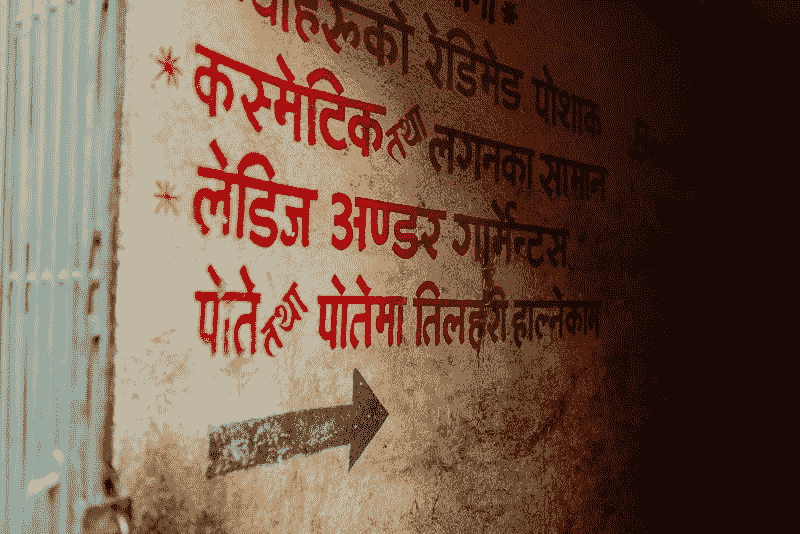 रेडिमेड पोशाक
* कस्मेटिक तथा लगनका सामान
* लेडिज अण्डर गार्मेन्टस
पोते तथा पोतेमा तिलहरी हाल्नेकाम